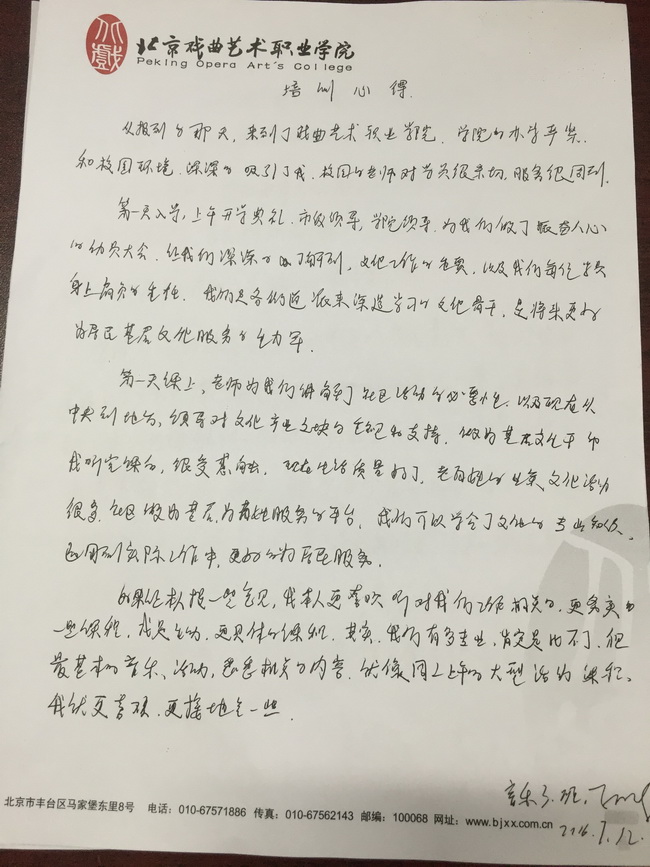 北戏
北京戏曲艺术职业学院
Peking Opera Art's College
培训心得
从报到的那天,来到了戏曲艺术职业学院,学院的办学
和校园环境,深深的吸引了我,校园的老师对学员很亲切,服务很周到,
第一天入学,上午开学典礼,市级领导,学院领导,为我们做了振奋人心
的动员大会,让我们深深的了解到,文化工作的重要,以及我们每位学员
身上肩负的责任。我们是各街道派来深造学习的文化骨干,是将来更好
的为居民基层文化服务的主力军.
第一天课上,老师为我们讲解了社区活动的必要性,以及现在从
中央到地方,领导对文化产业这块的重视和支持,做为基层文化干部
我听完课后,很受感触,现在生活质量好了,老百姓的业余文化活动
很多,社区做为基层,为百姓服务的平台,我们可以学会了文化的专业知识,
运用到实际工作中,更好的为居民服务.
如果让本人提一些意见,我本人更喜欢听对我们工作相关的,更务实的
一些课程,或是生动,更具体的课程,其实,我们有多专业,肯定是比不了,但
最基本的音乐、活动,相关的内容,就像周二上午的大型活动课程,
我就更喜欢,更接地气一些.
音乐 班,
2016.7.12.
北京市丰台区马家堡东里8号 电话:010-67571886 传真:010-67562143 邮编:100068 网址:www.bjxx.com.cn